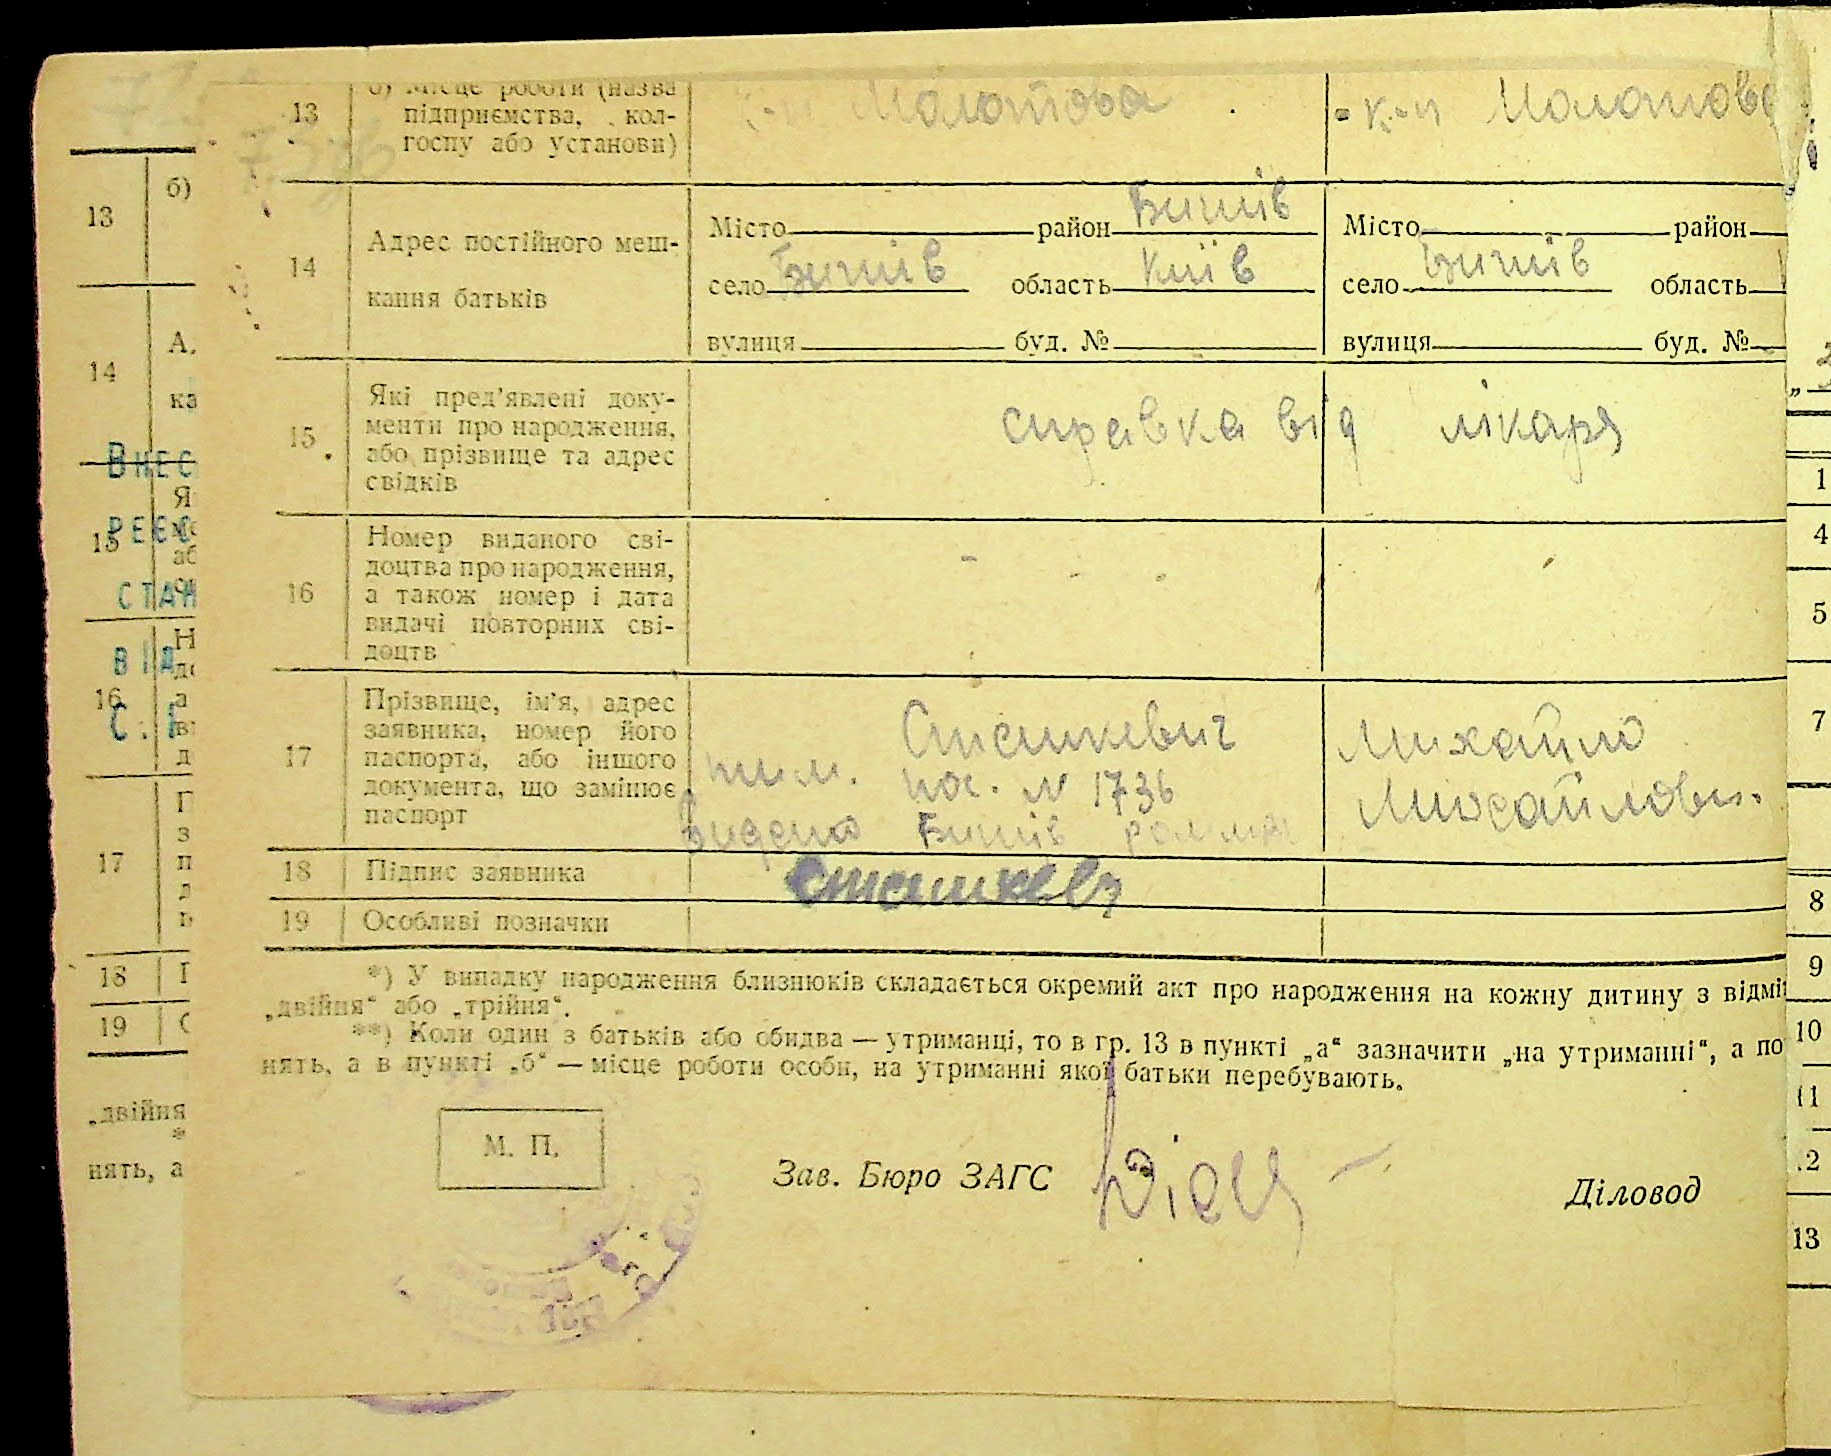 13
б) Місце роботи (назва
підприємства, кол-
госпу або установи)
к-п Молотова
к-п Молотова
14
Адрес постійного меш-
кання батьків
Місто район Бишів
село Бишів область Київ
вулиця буд. №
Місто район
село Бишів область
вулиця буд. №
15
Які пред’явлені доку-
менти про народження,
або прізвище та адрес
свідків
справка від лікаря
16
Номер виданого сві-
доцтва про народження,
а також номер і дата
видачі повторних сві-
доцтв
17
Прізвище, ім’я, адрес
заявника, номер його
паспорта, або іншого
документа, що замінює
паспорт
Сташкевич Михайло
тим. пос. № 1736 Михайлови.
Видано Бишів
18 Підпис заявника
Сташкевич
19 Особливі позначки
*) У випадку народження близнюків складається окремий акт про народження на кожну дитину з відмі
„двійня“ або „трійня“.
**) Коли один з батьків або обидва — утриманці, то в гр. 13 в пункті „а“ зазначити „на утриманні“, а по
нять, а в пункті „б“ — місце роботи особи, на утриманні якої батьки перебувають.
М. П.
Зав. Бюро ЗАГС
Діловод
13
б)
14
А.
ка
Внес
15
РЕЄС
СТАН
ВІД
16
С. Г
17
18
19
„двійня
*
нять, а
1
4
5
7
8
9
10
11
.2
13